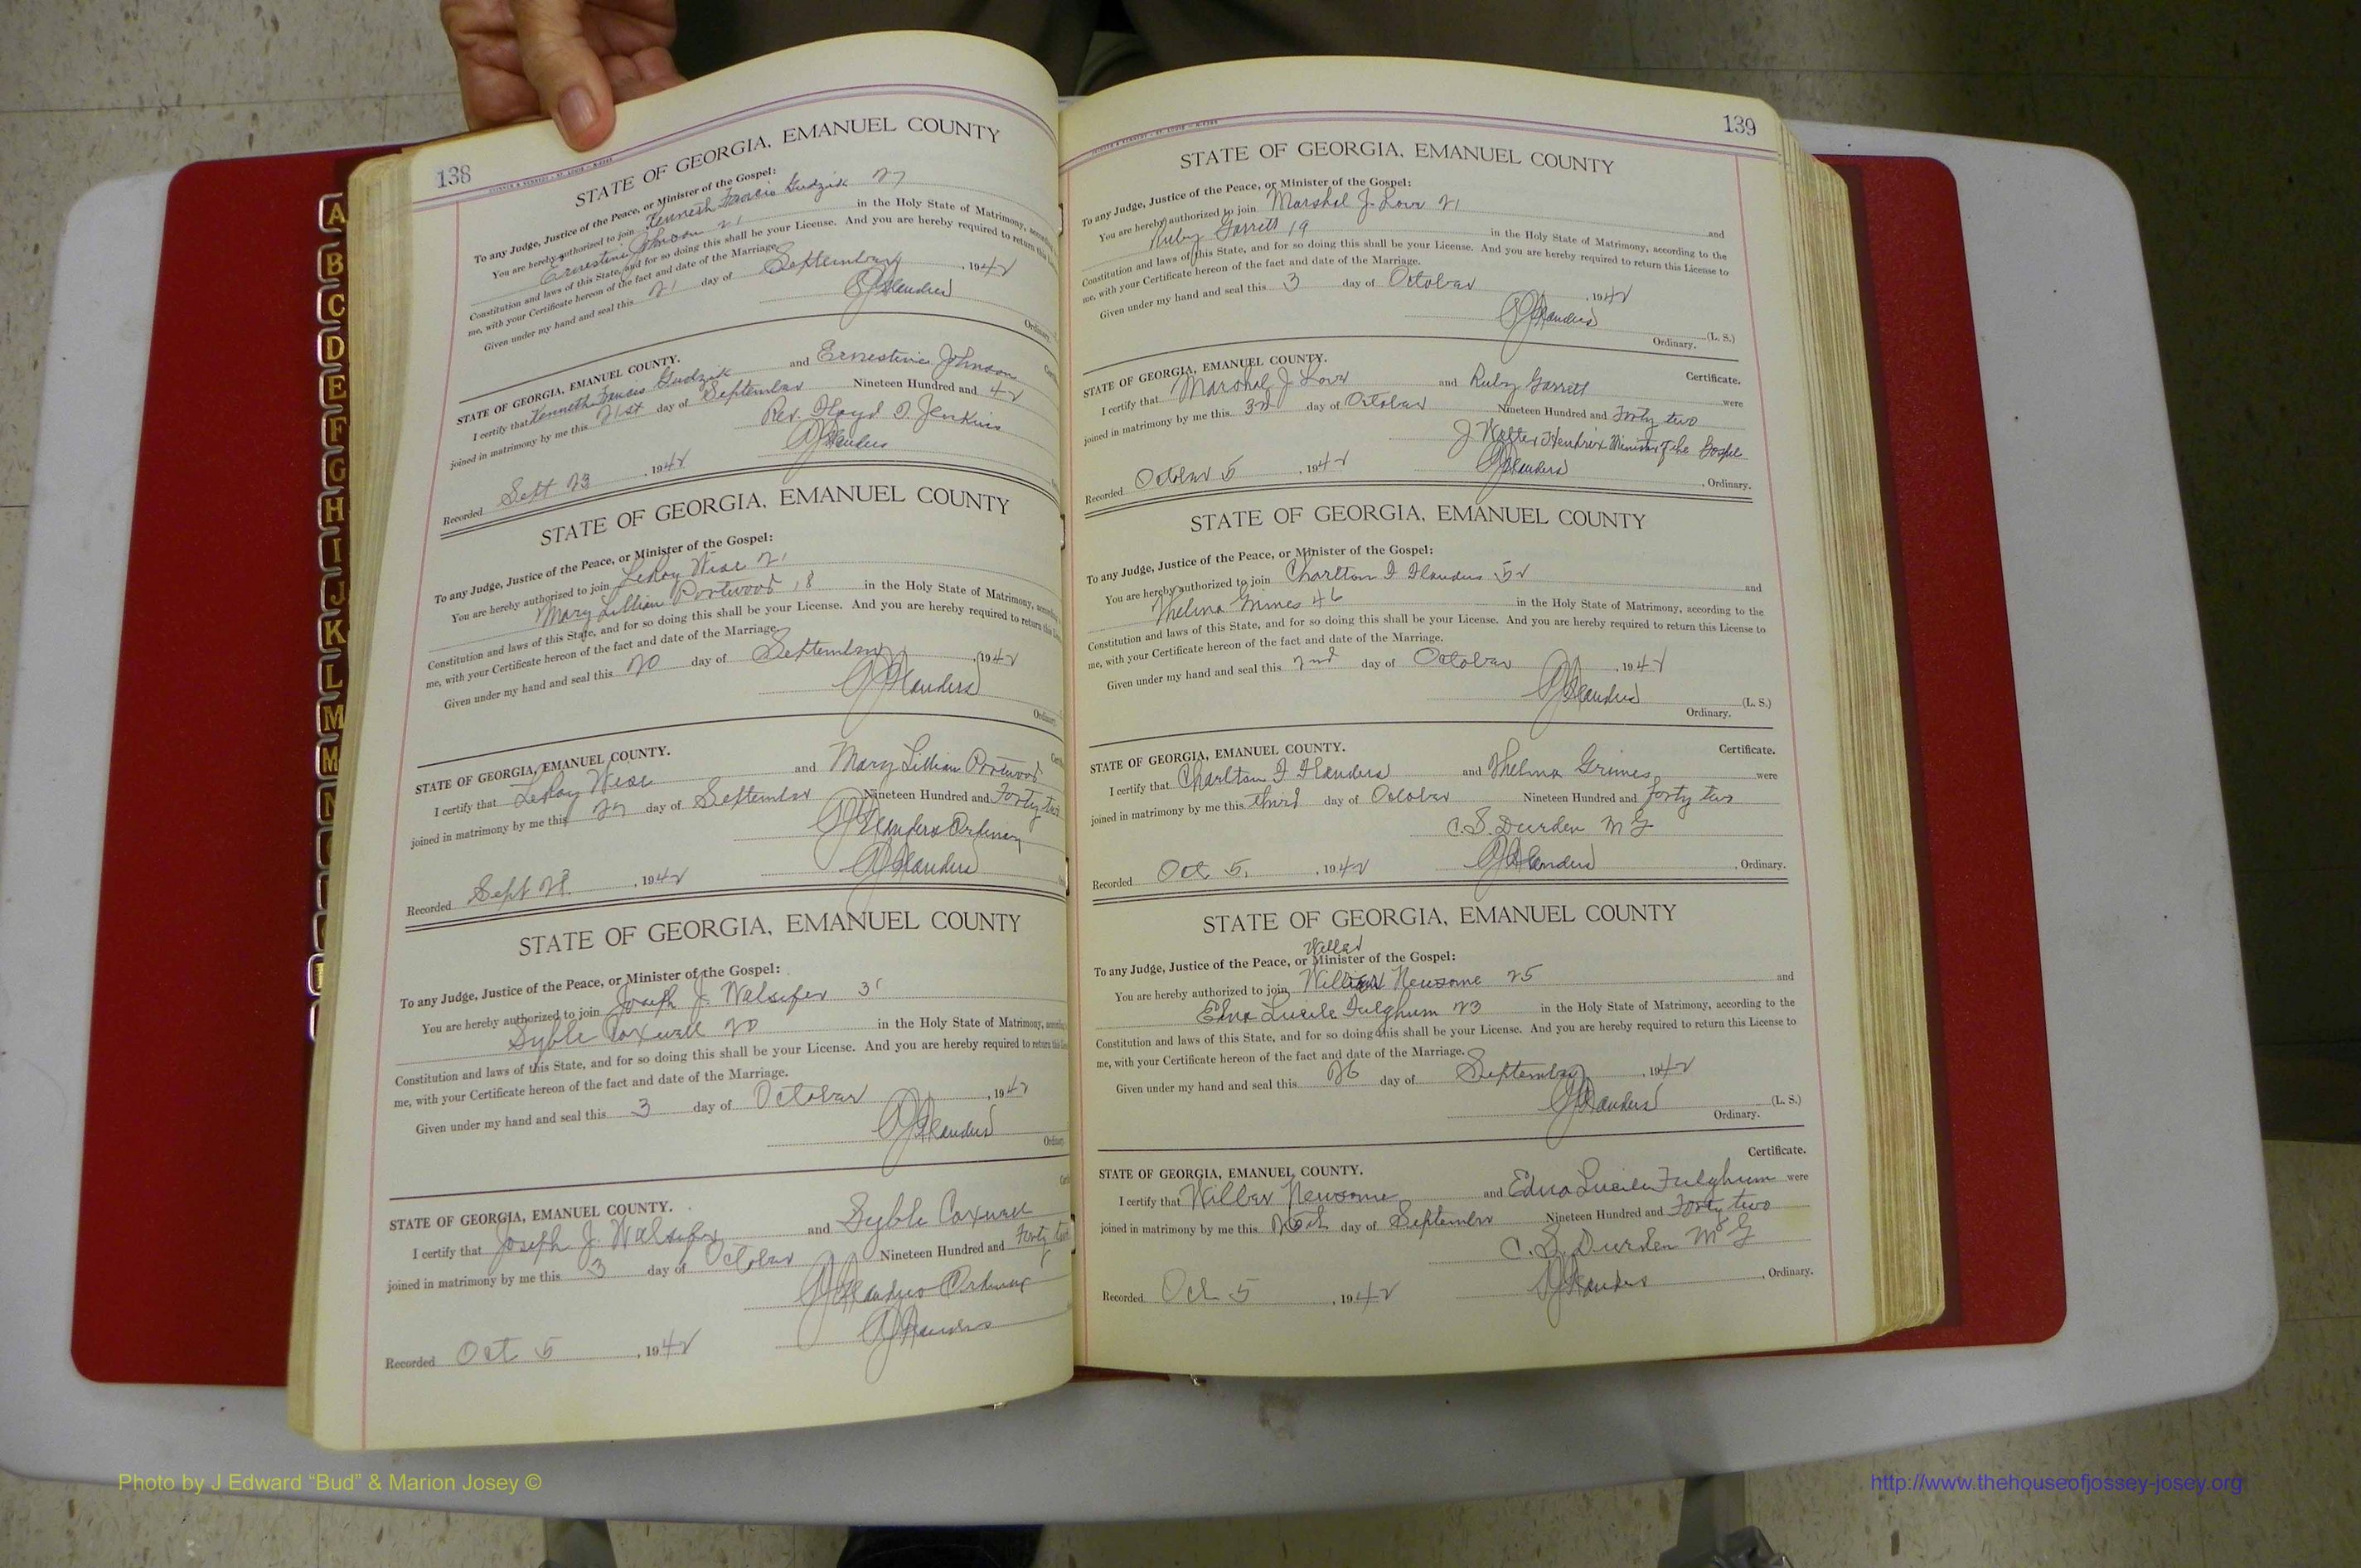 138
STATE OF GEORGIA, EMANUEL COUNTY
To any Judge, Justice of the Peace, or Minister of the Gospel:
You are hereby authorized to join Kenneth Francis Gudzik 27
Ernestine Johnson 21 in the Holy State of Matrimony,
Constitution and laws of this State, and for so doing this shall be your License. And you are hereby required to return this
me, with your Certificate hereon of the fact and date of the Marriage.
Given under my hand and seal this 21 day of September, 1942
Flanders
Ordinary.
STATE OF GEORGIA, EMANUEL COUNTY.
I certify that Kenneth Francis Gudzik and Ernestine Johnson
joined in matrimony by me this 21st day of September Nineteen Hundred and 42
Rev. Floyd Jenkins
Flanders
Recorded Sept 23, 1942
STATE OF GEORGIA, EMANUEL COUNTY
To any Judge, Justice of the Peace, or Minister of the Gospel:
You are hereby authorized to join LeRoy Wise 21
Mary Lillian Portwood 18 in the Holy State of Matrimony,
Constitution and laws of this State, and for so doing this shall be your License. And you are hereby required to return this
me, with your Certificate hereon of the fact and date of the Marriage.
Given under my hand and seal this 20 day of September, 1942
Flanders
Ordinary.
STATE OF GEORGIA, EMANUEL COUNTY.
I certify that LeRoy Wise and Mary Lillian Portwood
joined in matrimony by me this 27 day of September Nineteen Hundred and Forty two
Flanders Ordinary
Flanders
Recorded Sept 28, 1942
STATE OF GEORGIA, EMANUEL COUNTY
To any Judge, Justice of the Peace, or Minister of the Gospel:
You are hereby authorized to join Joseph J. Walsifer
Syble Coxwell 20 in the Holy State of Matrimony,
Constitution and laws of this State, and for so doing this shall be your License. And you are hereby required to return this
me, with your Certificate hereon of the fact and date of the Marriage.
Given under my hand and seal this 3 day of October, 1942
Flanders
Ordinary
STATE OF GEORGIA, EMANUEL COUNTY.
I certify that Joseph J. Walsifer and Syble Coxwell
joined in matrimony by me this 3 day of October Nineteen Hundred and Forty two
Flanders Ordinary
Flanders
Recorded Oct 5, 1942
A
B
C
D
E
F
G
H
I
J
K
L
M
M
N
139
STATE OF GEORGIA, EMANUEL COUNTY
To any Judge, Justice of the Peace, or Minister of the Gospel:
You are hereby authorized to join Marshal J. Love 21 and
Ruby Garrett 19 in the Holy State of Matrimony, according to the
Constitution and laws of this State, and for so doing this shall be your License. And you are hereby required to return this License to
me, with your Certificate hereon of the fact and date of the Marriage.
Given under my hand and seal this 3 day of October, 1942
Flanders (L. S.)
Ordinary.
STATE OF GEORGIA, EMANUEL COUNTY. Certificate.
I certify that Marshal J Love and Ruby Garrett were
joined in matrimony by me this 3rd day of October Nineteen Hundred and Forty two
J Walter Hendrix Minister of the Gospel
Recorded October 5, 1942 Flanders, Ordinary.
STATE OF GEORGIA, EMANUEL COUNTY
To any Judge, Justice of the Peace, or Minister of the Gospel:
You are hereby authorized to join Charlton F Flanders 52 and
Thelma Grimes 46 in the Holy State of Matrimony, according to the
Constitution and laws of this State, and for so doing this shall be your License. And you are hereby required to return this License to
me, with your Certificate hereon of the fact and date of the Marriage.
Given under my hand and seal this 2nd day of October, 1942
Flanders (L. S.)
Ordinary.
STATE OF GEORGIA, EMANUEL COUNTY. Certificate.
I certify that Charlton F Flanders and Thelma Grimes were
joined in matrimony by me this third day of October Nineteen Hundred and Forty two
C. S. Durden M G
Recorded Oct 5, 1942 Flanders, Ordinary.
STATE OF GEORGIA, EMANUEL COUNTY
To any Judge, Justice of the Peace, or Minister of the Gospel:
Wilber
You are hereby authorized to join Newsome 25 and
Edna Lucile Fulghum 23 in the Holy State of Matrimony, according to the
Constitution and laws of this State, and for so doing this shall be your License. And you are hereby required to return this License to
me, with your Certificate hereon of the fact and date of the Marriage.
Given under my hand and seal this 26 day of September, 1942
Flanders (L. S.)
Ordinary.
Certificate.
STATE OF GEORGIA, EMANUEL COUNTY.
I certify that Wilber Newsome and Edna Lucile Fulghum were
joined in matrimony by me this day of September Nineteen Hundred and Forty two
C. S. Durden M G
Recorded Oct 5, 1942 Flanders, Ordinary.
Photo by J Edward “Bud” & Marion Josey ©
http://www.thehouseofjossey-josey.org